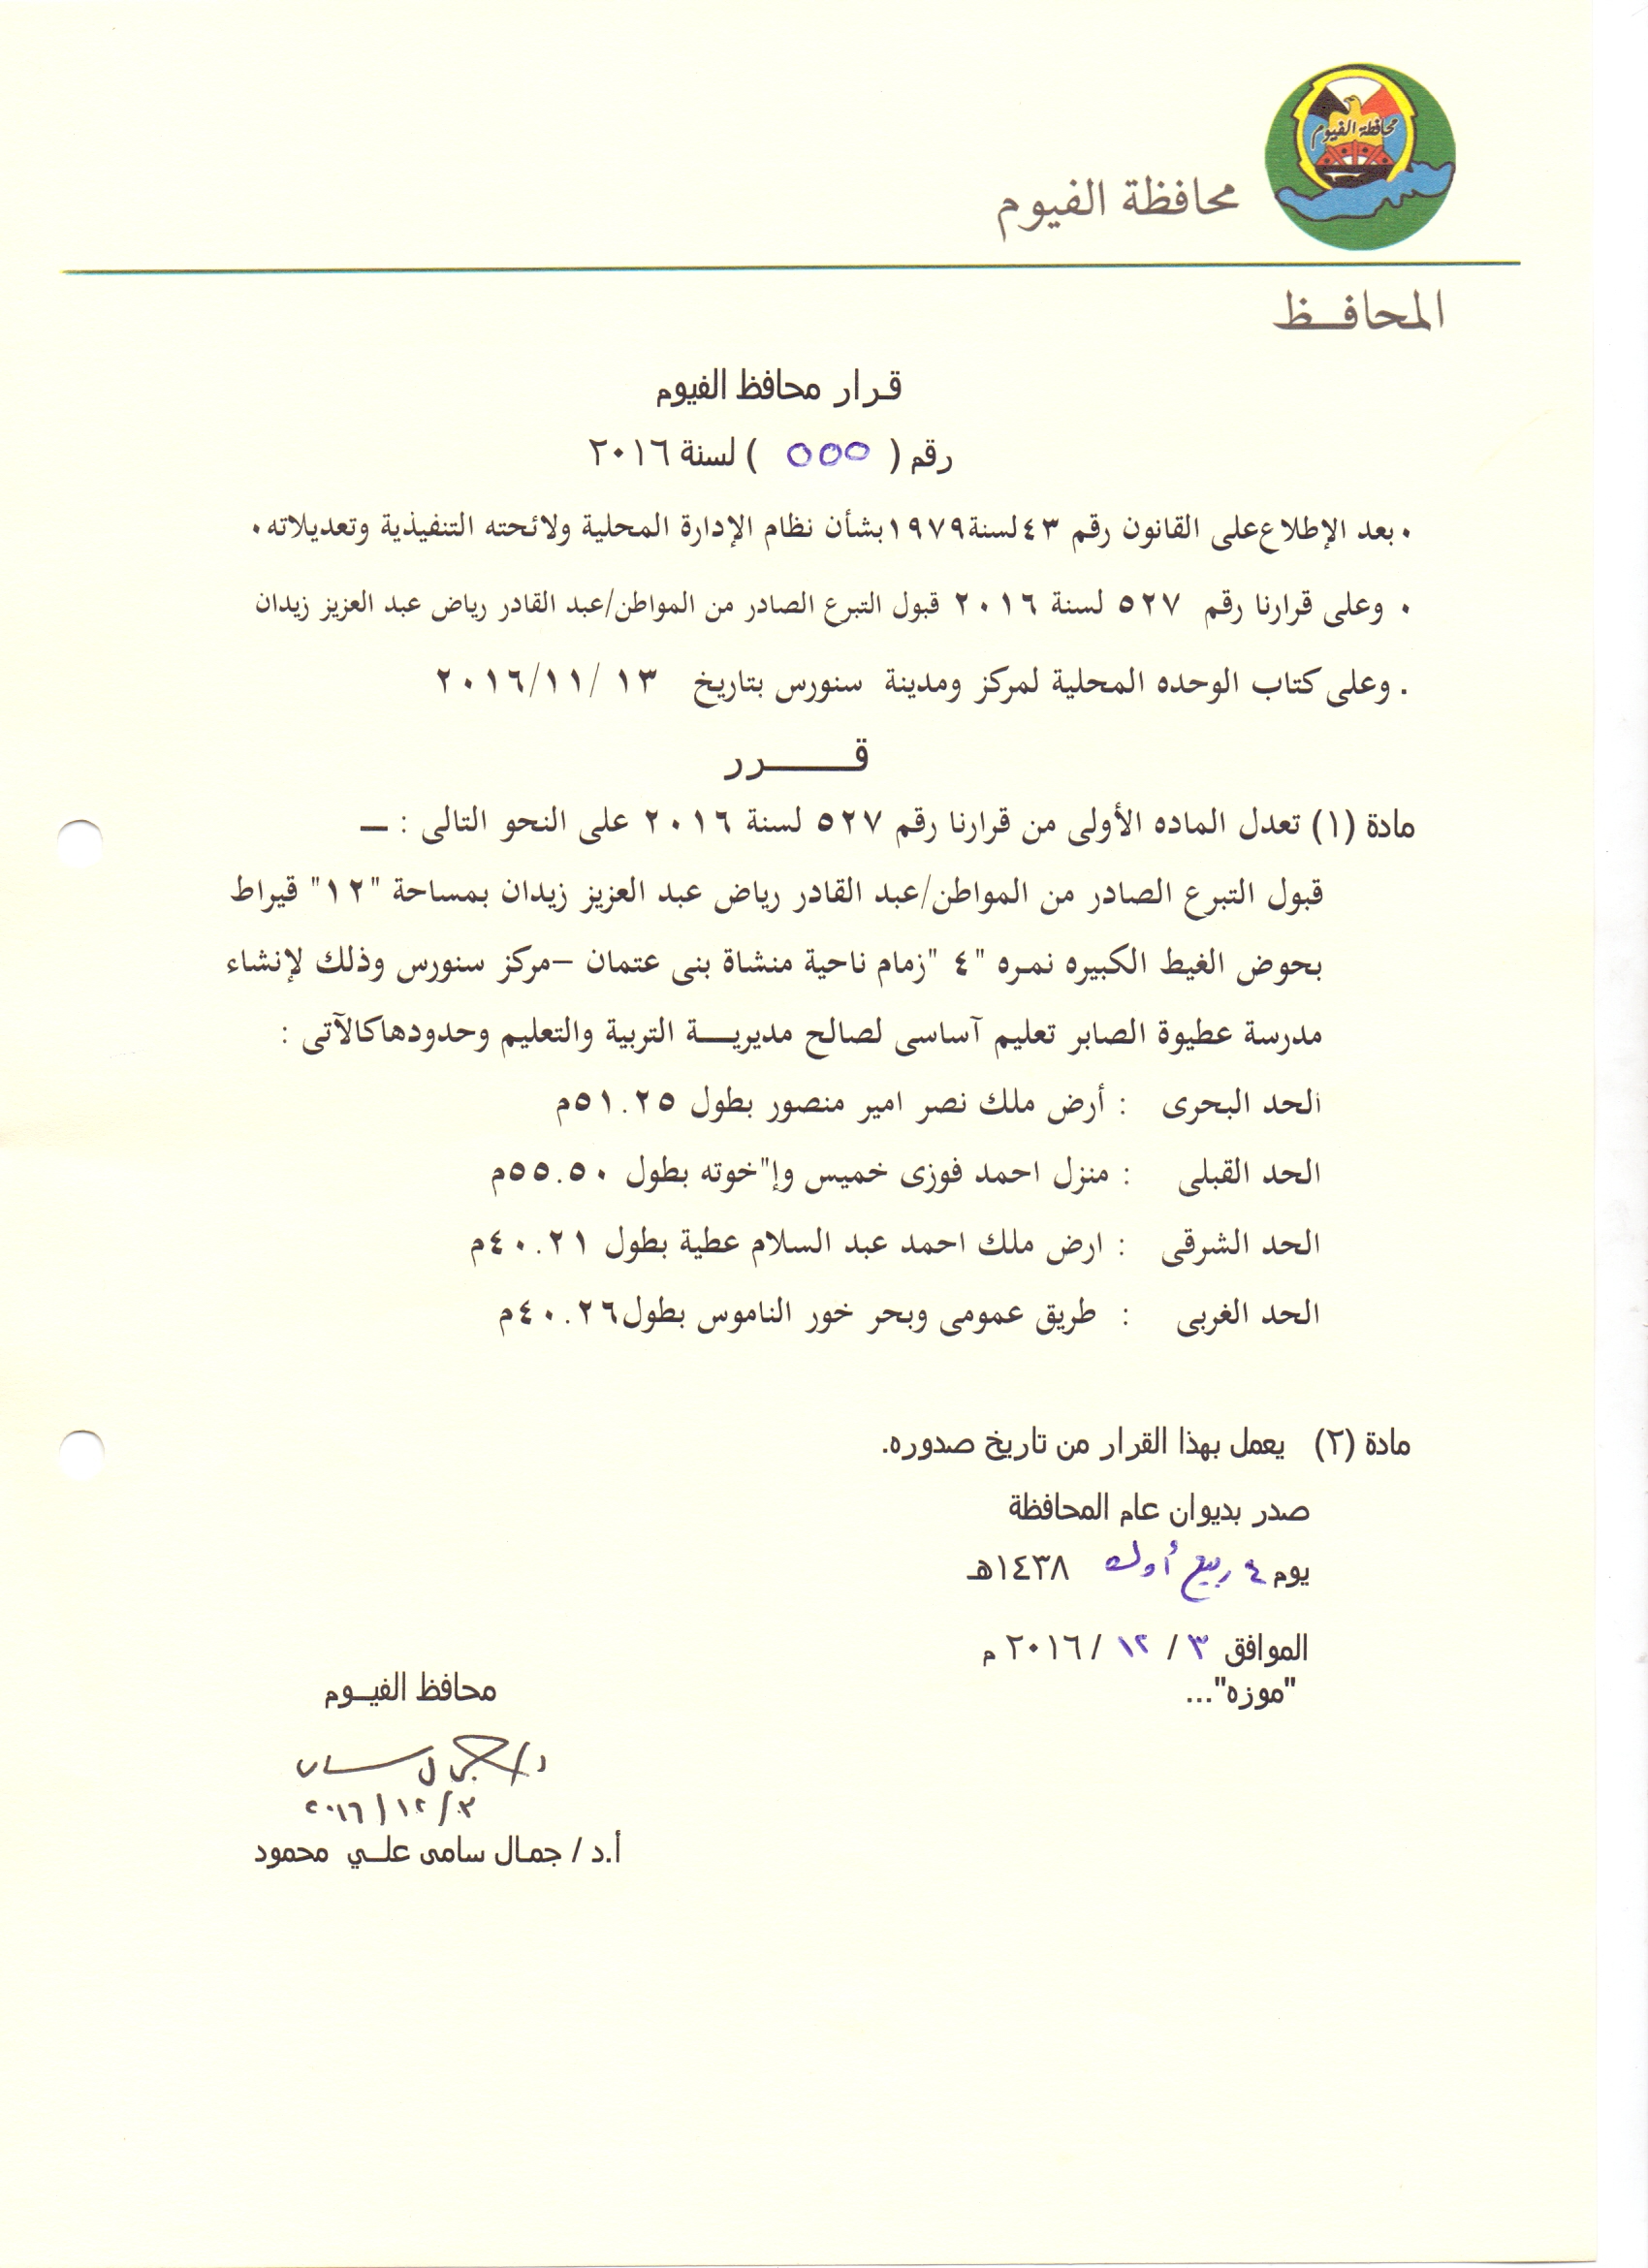 محافظة الفيوم
محافظة الفيوم
المحافـــظ
قـرار محافظ الفيوم
رقم ( ٥٥٥ ) لسنة ٢٠١٦
٠ بعد الإطلاع على القانون رقم ٤٣ لسنة ١٩٧٩ بشأن نظام الإدارة المحلية ولائحته التنفيذية وتعديلاته٠
٠ وعلى قرارنا رقم ٥٢٧ لسنة ٢٠١٦ قبول التبرع الصادر من المواطن/عبد القادر رياض عبد العزيز زيدان
. وعلى كتاب الوحده المحلية لمركز ومدينة سنورس بتاريخ ١٣ /٢٠١٦/١١
قـــــــرر
مادة (١) تعدل الماده الأولى من قرارنا رقم ٥٢٧ لسنة ٢٠١٦ على النحو التالى : ـــ
قبول التبرع الصادر من المواطن/عبد القادر رياض عبد العزيز زيدان بمساحة "١٢" قيراط
بحوض الغيط الكبيره نمره "٤ "زمام ناحية منشاة بنى عتمان –مركز سنورس وذلك لإنشاء
مدرسة عطيوة الصابر تعليم آساسى لصالح مديريـــة التربية والتعليم وحدودهاكالآتى :
الحد البحرى : أرض ملك نصر امير منصور بطول ٥١.٢٥م
الحد القبلى : منزل احمد فوزى خميس وإ"خوته بطول ٥٥.٥٠م
الحد الشرقى : ارض ملك احمد عبد السلام عطية بطول ٤٠.٢١م
الحد الغربى : طريق عمومى وبحر خور الناموس بطول٤٠.٢٦م
مادة (٢) يعمل بهذا القرار من تاريخ صدوره.
صدر بديوان عام المحافظة
يوم ٤ ربيع أول ١٤٣٨هـ
الموافق ٣ / ١٢ / ٢٠١٦ م
"موزه"...
محافظ الفيــوم
د/جمال سامى
٣/١٢/٢٠١٦
أ.د / جمـال سامى علــي محمود